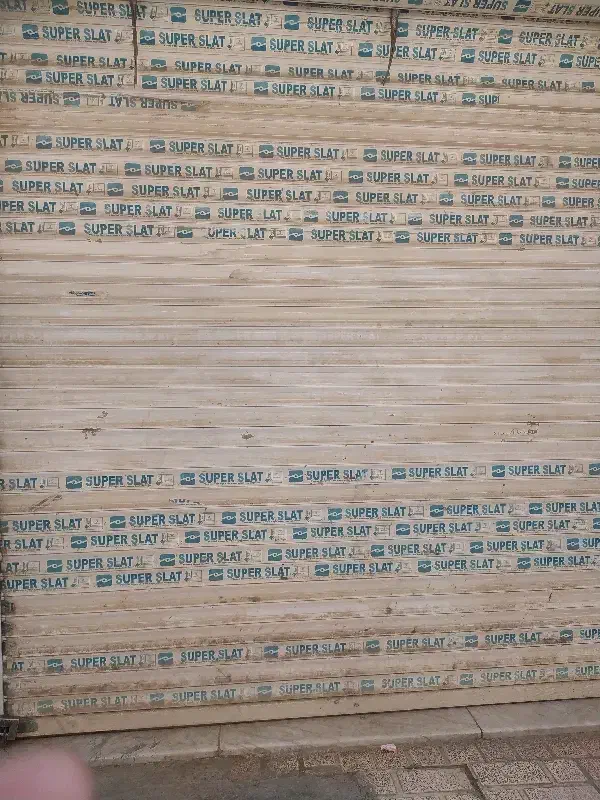 SUPER SLAT SUPER SLAT SUPER SLAT SUPER SLAT SUPER SLAT
SUPER SLAT SUPER SLAT SUPER SLAT SUPER SLAT SUPER SLAT SUPE
SUPER SLAT SUPER SLAT SUPER SLAT SUPER SLAT SUPER SLAT
SUPER SLAT SUPER SLAT SUPER SLAT SUPER SLAT SUPE
SUPER SLAT SUPER SLAT
SUPER SLAT SUPER SLAT SUPER SLAT SUPER SLAT SUPER SLAT SUPE
SUPER SLAT SUPER SLAT SUPER SLAT SUPER SLAT SUPER SLAT SUPER
SUPER SLAT SUPER SLAT SUPER SLAT SUPER SLAT SUPER SLAT SUPER
SUPER SLAT SUPER SLAT SUPER SLAT SUPER SLAT SUPER SLAT SUPER SLAT
SLAT SUPER SLAT SUPER SLAT SUPER SLAT SUPER SLAT SUPER SLAT
R SLAT SUPER SLAT SUPER SLAT SUPER SLAT SUPER SLAT SUPER SLAT
SUPER SLAT SUPER SLAT SUPER SLAT SUPER SLAT SUPER SLAT SUPER SLAT
R SLAT SUPER SLAT SUPER SLAT SUPER SLAT SUPER SLAT SUPER SLAT SUP
AT SUPER SLAT SUPER SLAT SUPER SLAT SUPER SLAT SUPER SLAT
SUPER SLAT SUPER SLAT SUPER SLAT SUPER SLAT SUPER SLAT SUPER SLAT
AT SUPER SLAT SUPER SLAT SUPER SLAT SUPER SLAT SUPER SLAT SUPER
SUPER SLAT SUPER SLAT SUPER SLAT SUPER SLAT SUPER SLAT SUPE